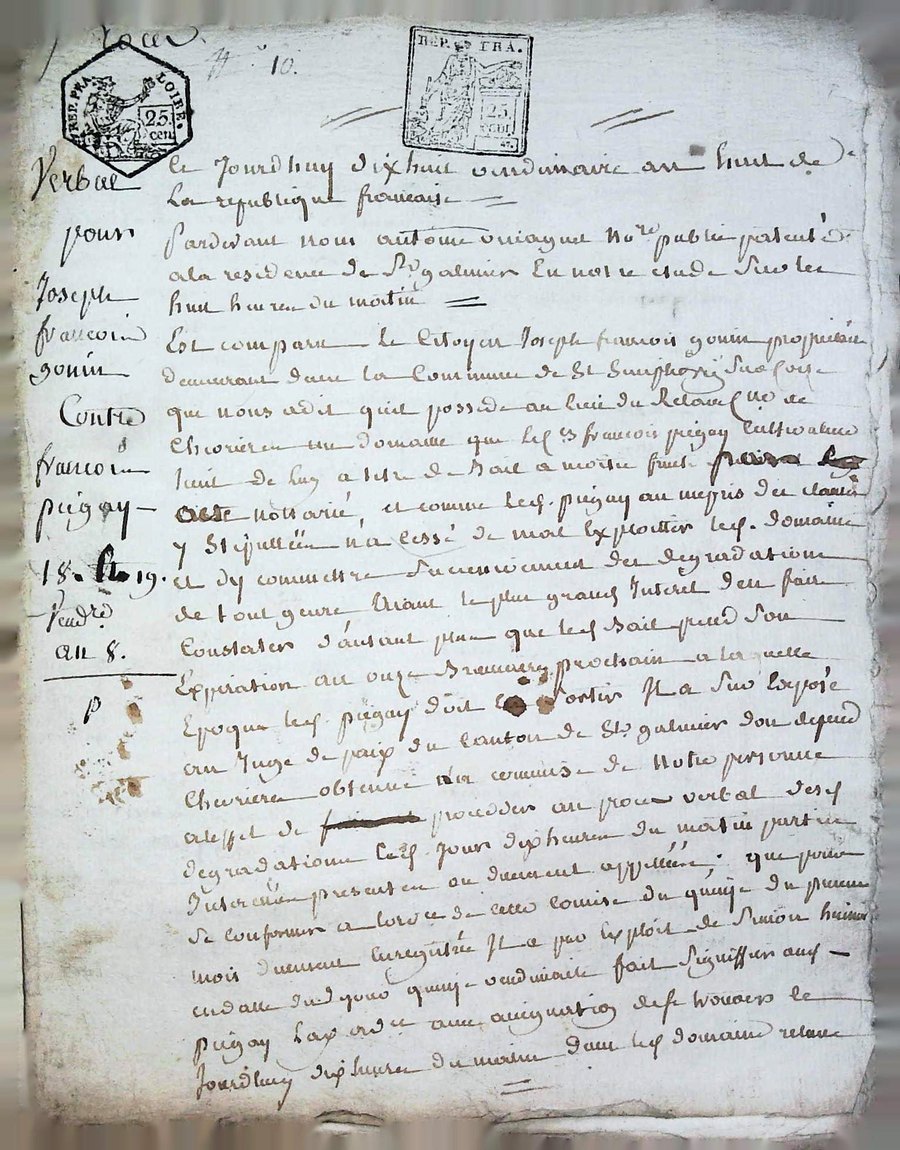 Procer
N.° 10.
REP. FRA. LOIRE.
25 cen
REP. FRA.
25 cent
Verbal
pour
Joseph
francois
gonin
Contre
francois
pugay
18. et 19.
Vendre
an 8.
p
le Jourdhuy dixhuit vendimiaire an huit de
La republique francaise
Pardevant nous antoine No.re public patenté
ala residence de St galmier En notre etude Sur les
huit heures du matin
Est comparu le Citoyen Joseph francois gonin propriétaire
demeurant dans la Commune de St Simphorij Sur Coize
que nous adit quil possede au lieu du Relave de
Chevrieres un domaine que led francois pugay Cultivateur
tient de luy a titre de Bail a moitié fruit
acte nottarié, et comme led. pugay au mepris des clauses
y Stipullées n'a Cessé de mal Exploitter led. domaine
et dy commettre Successivement des degradations
de tout genre Ayant le plus grand Interet den faire
Constater d'autant plus que led Bail prend Son
Expiration au onze Brumaire prochain a laquelle
Epoque led. pugay doit Sortir Il a Sur Exposé
au Juge de paix du Canton de St. galmier dou depend
Chevrieres obtenue la commise de Notre personne
aleffet de proceder au proces verbal desd
degradations led. Jour dix heures du matin parties
Interessées presentes ou duement appellées. que pour
Se Conformer a lordce de cette Comise du quinze du present
mois duement Enregistrée Il a par Exploit de Simon huissier
endatte dud jour quinze vendimiaire fait Signiffier aud
pugay avec assignation de Se trouver le
Jourdhuy dix heures du matin dans led domaine relave